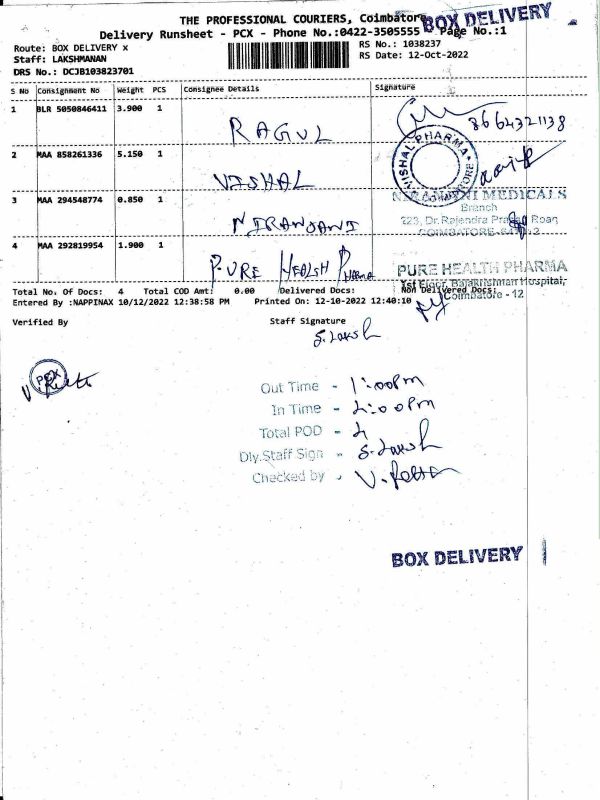 THE PROFESSIONAL COURIERS, Coimbatore
BOX DELIVERY
Delivery Runsheet - PCX - Phone No.:0422-3505555 Page No.:1
Route: BOX DELIVERY x
RS No.: 1038237
Staff: LAKSHMANAN
RS Date: 12-Oct-2022
DRS No.: DCJB103823701
S No Consignment No Weight PCS Consignee Details Signature
1 BLR 5050846411 3.900 1
RAGUL
8664321138
2 MAA 858261336 5.150 1
VISHAL
VISHAL PHARMA
3 MAA 294548774 0.850 1
NIRANJANI
NIRANJANI MEDICALS
Branch
223, Dr. Rajendra Prasad Road,
COIMBATORE
4 MAA 292819954 1.900 1
PURE HEALSH PHARMA
PURE HEALTH PHARMA
1st Floor, Balakrishnan Hospital,
Coimbatore - 12
Total No. Of Docs: 4 Total COD Amt: 0.00 Delivered Docs: Non Delivered Docs:
Entered By :NAPPINAX 10/12/2022 12:38:58 PM Printed On: 12-10-2022 12:40:10
Verified By
Staff Signature
S. Laksh
PCX
Out Time - 1:00pm
In Time - 4:00pm
Total POD - 4
Dly.Staff Sign - S. Laksh
Checked by -
BOX DELIVERY